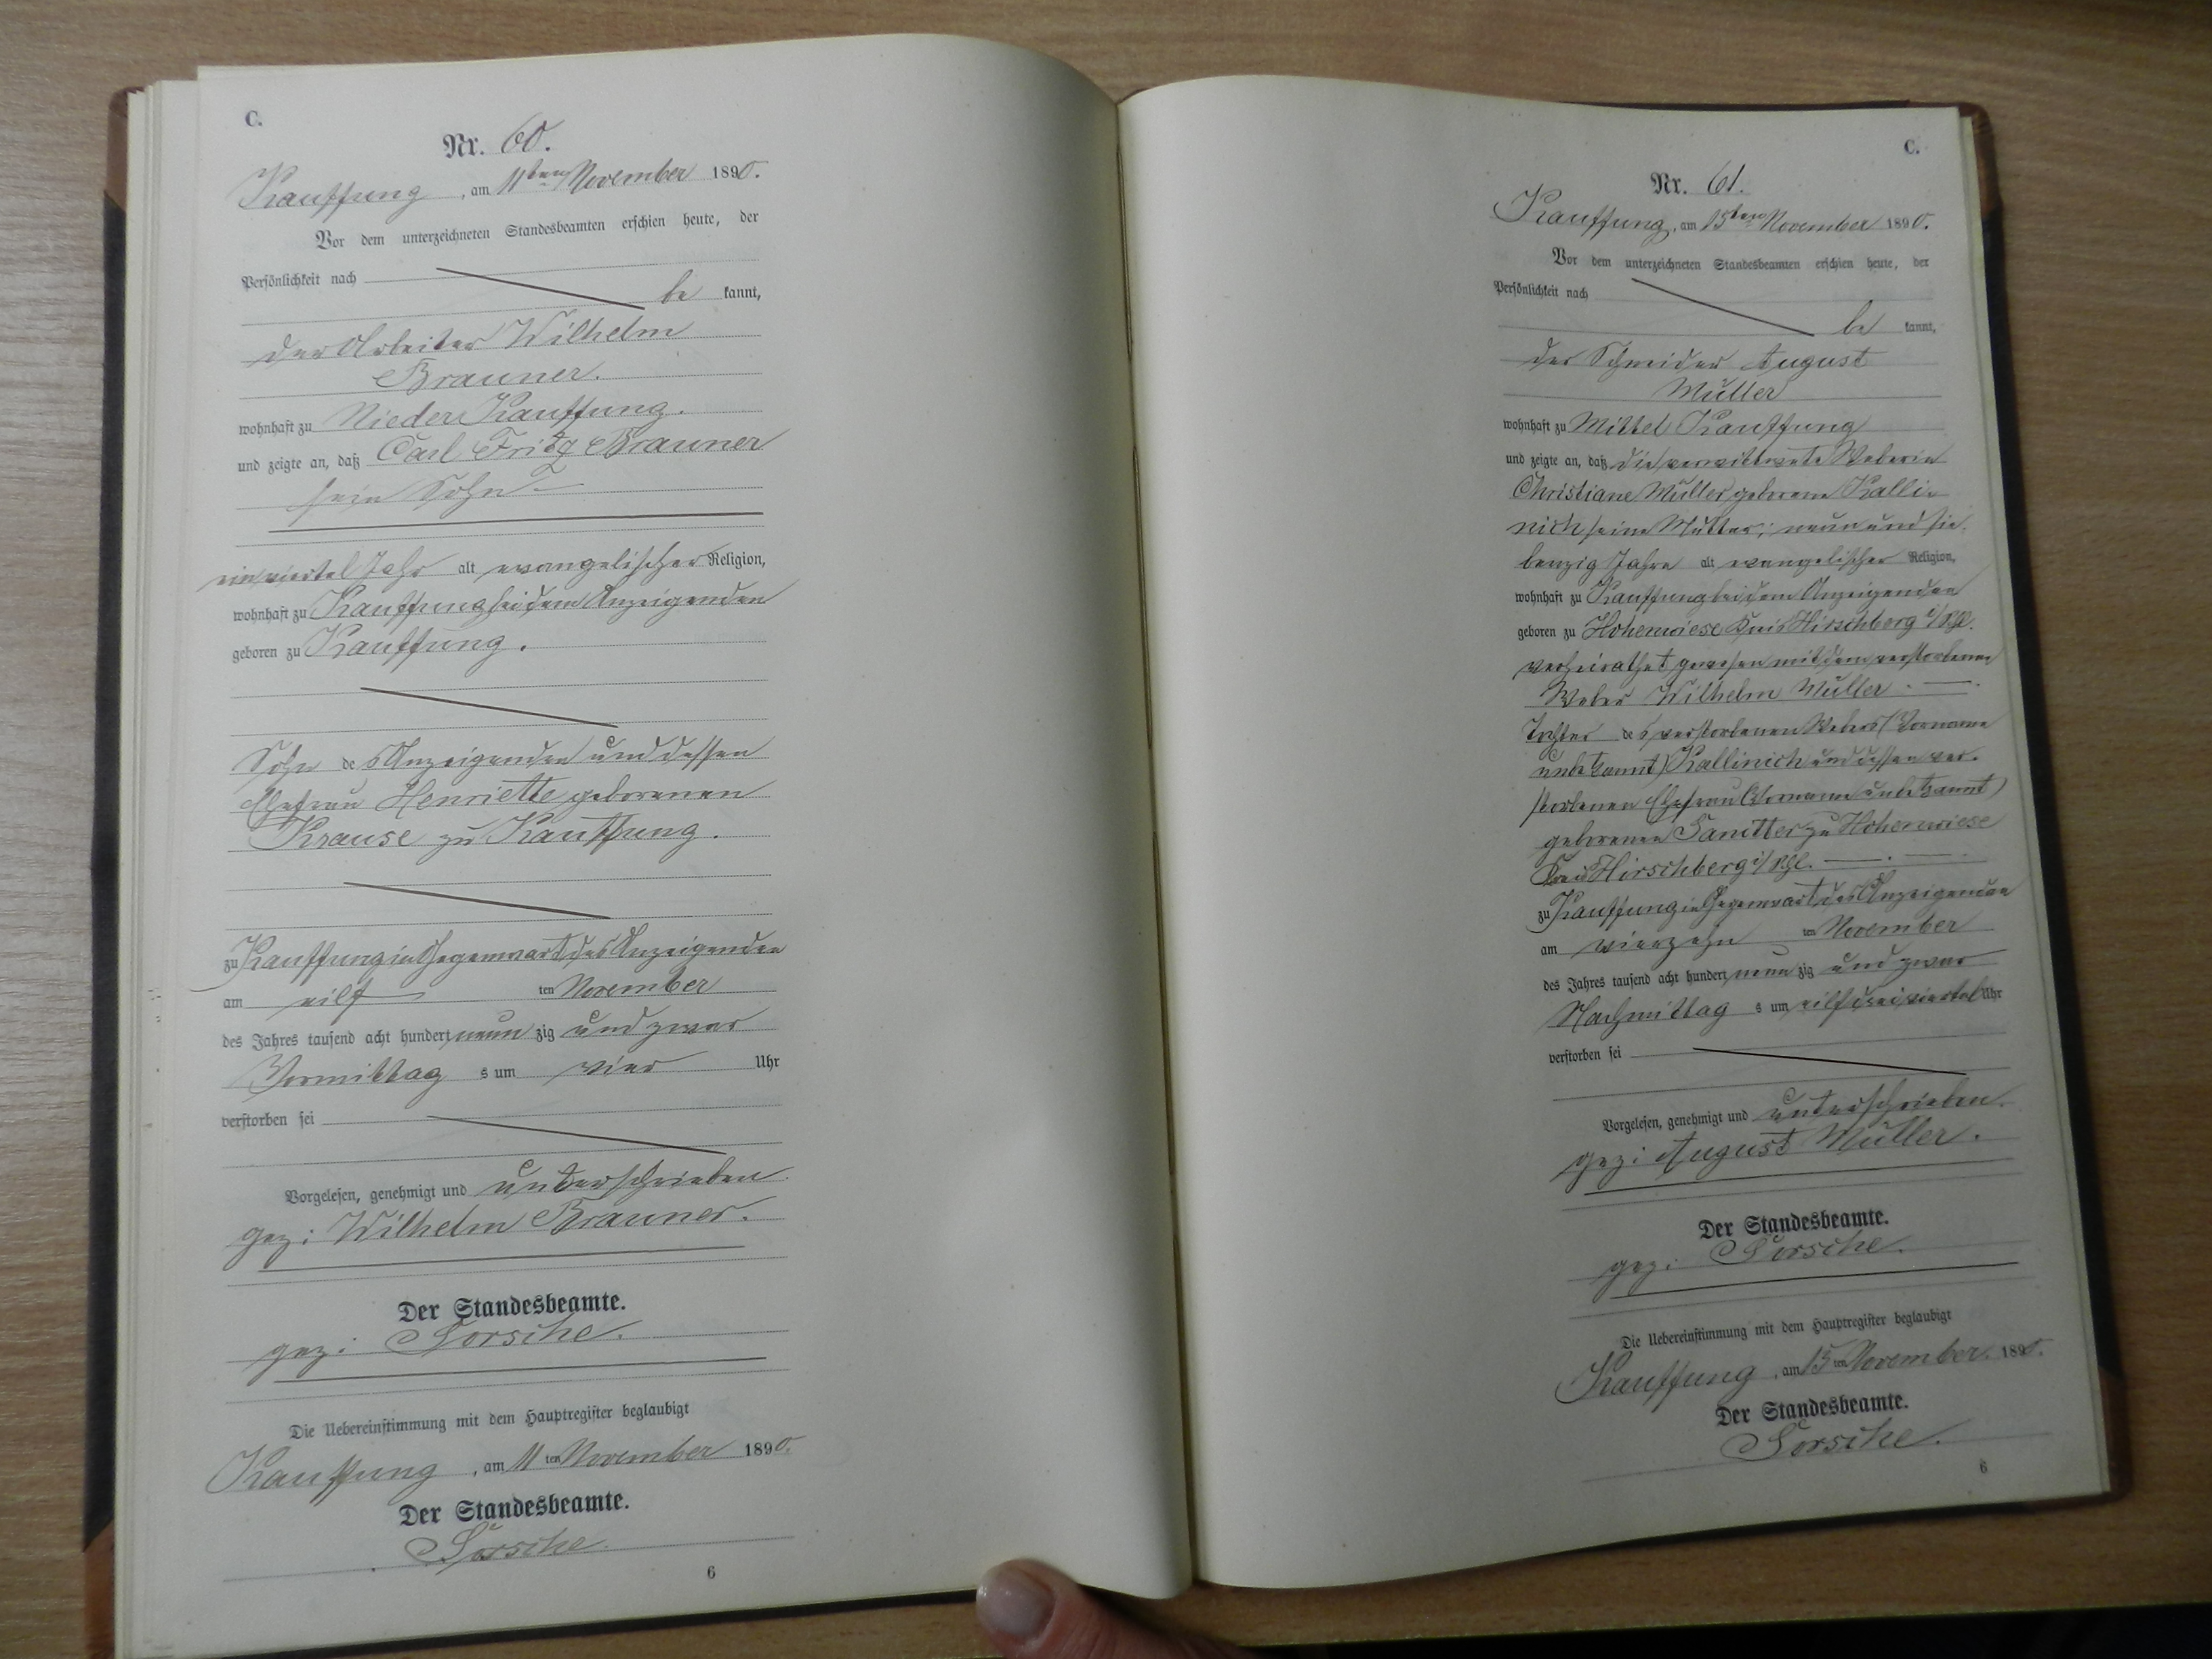 C.
Nr. 60.
Kauffung, am 11ten November 1890.
Vor dem unterzeichneten Standesbeamten erschien heute, der
Persönlichkeit nach
be kannt,
der Arbeiter Wilhelm
Brauner.
wohnhaft zu Nieder Kauffung.
und zeigte an, daß Carl Fritz Brauner
sein Sohn
einviertel Jahr alt evangelischer Religion,
wohnhaft zu Kauffung bei dem Anzeigenden
geboren zu Kauffung.
Sohn des Anzeigenden und dessen
Ehefrau Henriette geborenen
Krause zu Kauffung.
zu Kauffung in Gegenwart des Anzeigenden
am eilf ten November
des Jahres tausend acht hundert neun zig und zwar
Vormittag s um vier Uhr
verstorben sei
Vorgelesen, genehmigt und unterschrieben.
gez: Wilhelm Brauner.
Der Standesbeamte.
gez: Sorsche.
Die Uebereinstimmung mit dem Hauptregister beglaubigt
Kauffung, am 11 ten November 1890.
Der Standesbeamte.
Sorsche.
6
C.
Nr. 61.
Kauffung, am 15ten November 1890.
Vor dem unterzeichneten Standesbeamten erschien heute, der
Persönlichkeit nach
be kannt,
der Schneider August
Müller
wohnhaft zu Mittel Kauffung
und zeigte an, daß die verwittwete Weberin
Christiane Müller geborene Kalli-
nich seine Mutter; neun und sie-
benzig Jahre alt evangelischer Religion,
wohnhaft zu Kauffung bei dem Anzeigenden
geboren zu Hohenwiese Kreis Hirschberg i/Schl.
verheirathet gewesen mit dem verstorbenen
Weber Wilhelm Müller.
Tochter des verstorbenen Webers (Vorname
unbekannt) Kallinich und dessen ver-
storbenen Ehefrau (Vorname unbekannt)
geborenen zu Hohenwiese
Kreis Hirschberg i/Schl.
zu Kauffung in Gegenwart des Anzeigenden
am vierzehn ten November
des Jahres tausend acht hundert neun zig und zwar
Nachmittag s um eilf dreiviertel Uhr
verstorben sei
Vorgelesen, genehmigt und unterschrieben.
gez: August Müller.
Der Standesbeamte.
gez: Sorsche.
Die Uebereinstimmung mit dem Hauptregister beglaubigt
Kauffung, am 15 ten November. 1890.
Der Standesbeamte.
Sorsche.
6